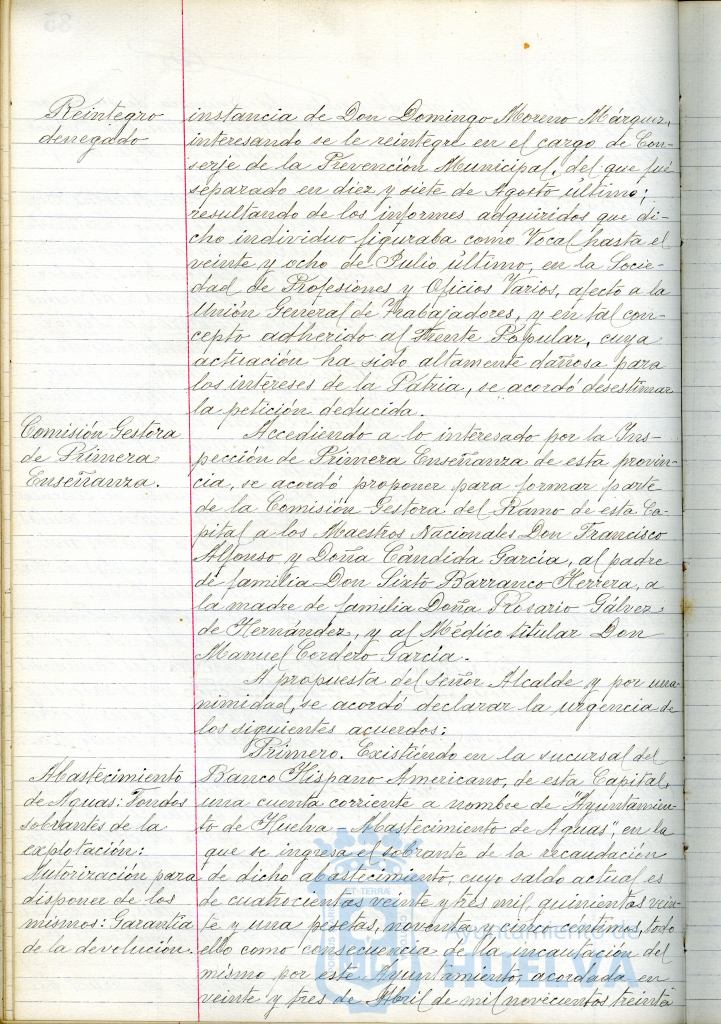 Reintegro
denegado
instancia de Don Domingo Moreno Márquez,
interesando se le reintegre en el cargo de Con-
serje de la Prevención Municipal, del que fué
separado en diez y siete de Agosto último;
resultando de los informes adquiridos que di-
cho individuo figuraba como Vocal hasta el
veinte y ocho de Julio último, en la Socie-
dad de Profesiones y Oficios Varios, afecto a la
Unión General de Trabajadores, y en tal con-
cepto adherido al Frente Popular, cuya
actuación ha sido altamente dañosa para
los intereses de la Patria, se acordó desestimar
la petición deducida.
Comisión Gestora
de Primera
Enseñanza.
Accediendo a lo interesado por la Ins-
pección de Primera Enseñanza de esta provin-
cia, se acordó proponer para formar parte
de la Comisión Gestora del Ramo de esta Ca-
pital a los Maestros Nacionales Don Francisco
Alfonso y Doña Cándida García, al padre
de familia Don Sixto Barranco Herrera, a
la madre de familia Doña Rosario Gálvez
de Hernández, y al Médico titular Don
Manuel Cordero García.
A propuesta del señor Alcalde y por una-
nimidad, se acordó declarar la urgencia de
los siguientes acuerdos:
Abastecimiento
de Aguas: Fondos
sobrantes de la
explotación:
Autorización para
disponer de los
mismos: Garantía
de la devolución.
Primero. Existiendo en la sucursal del
Banco Hispano Americano, de esta Capital,
una cuenta corriente a nombre de "Ayuntamien-
to de Huelva - Abastecimiento de Aguas", en la
que se ingresa el sobrante de la recaudación
de dicho abastecimiento, cuyo saldo actual es
de cuatrocientas veinte y tres mil, quinientas vein-
te y una pesetas, noventa y cinco céntimos, todo
ello como consecuencia de la incautación del
mismo por este Ayuntamiento, acordada en
veinte y tres de Abril de mil novecientos treinta
Ayuntamiento de
HUELVA